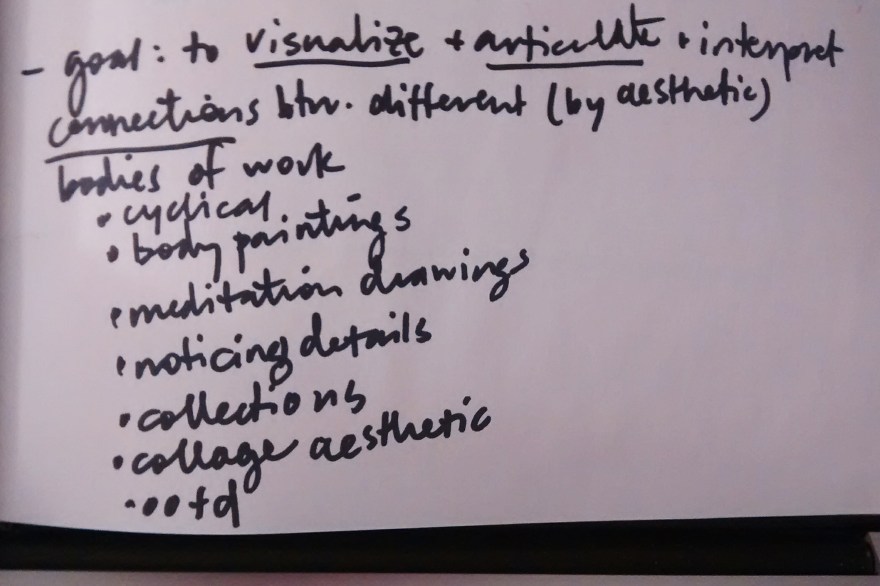 - goal: to visualize + articulate + interpret
connections btw. different (by aesthetic)
bodies of work
• cyclical
• body paintings
• meditation drawings
• noticing details
• collections
• collage aesthetic
• ootd